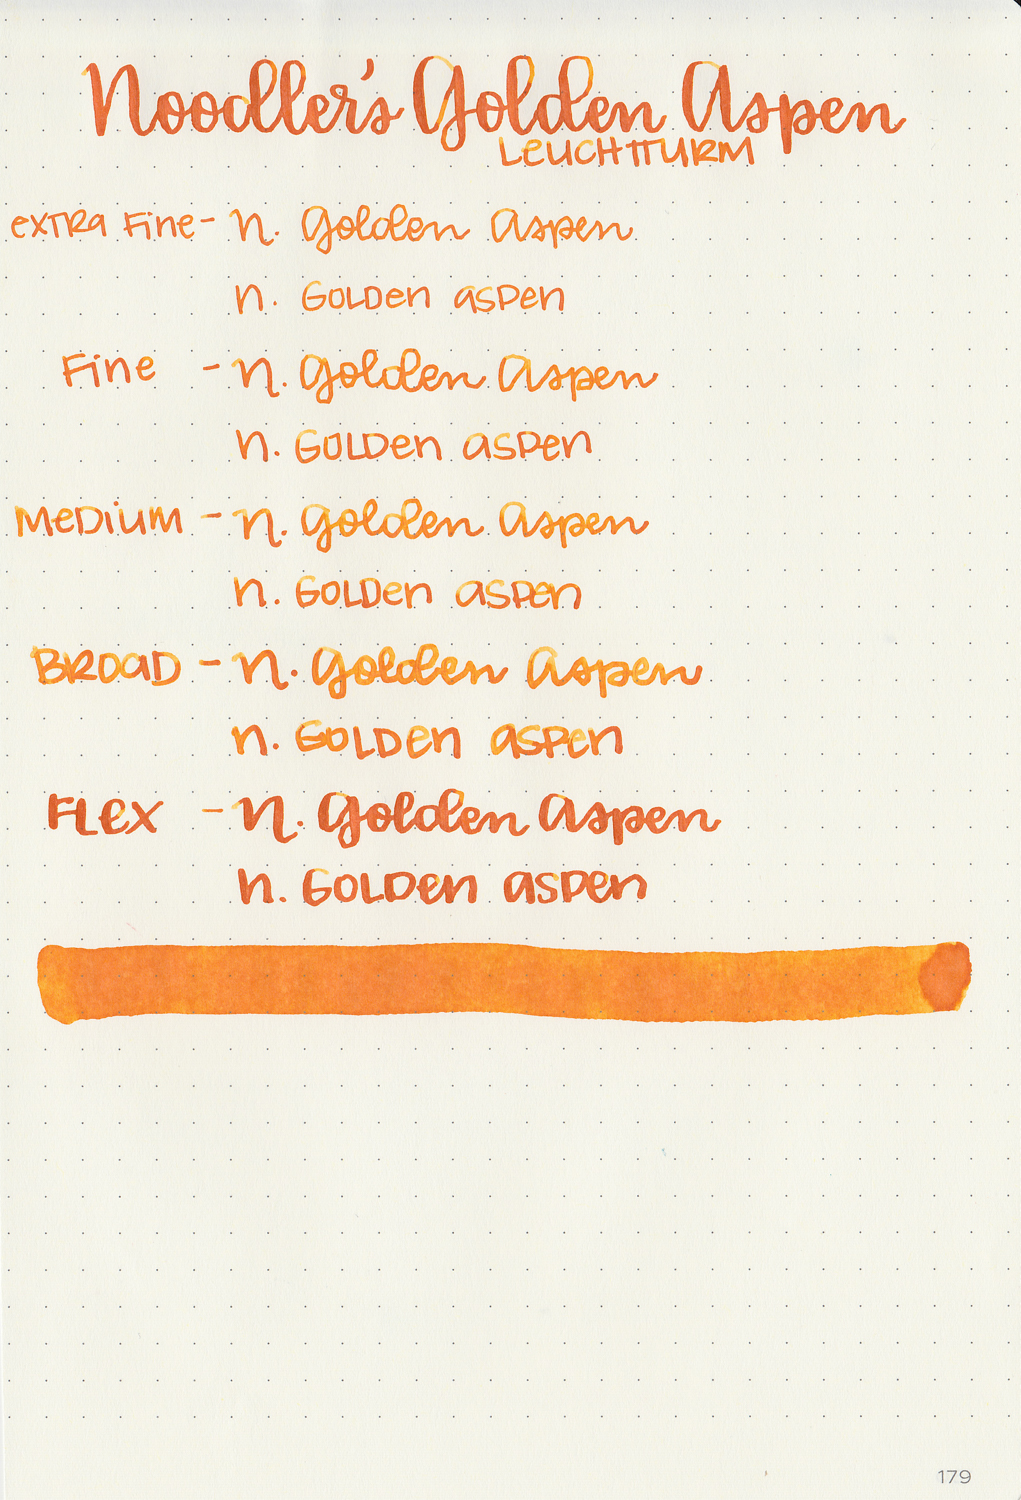 Noodler's Golden Aspen
LEUCHTTURM
eXTRa Fine - n. Golden Aspen
n. GOLDen asPen
Fine - n. Golden Aspen
n. GOLDen asPen
MeDium - n. Golden Aspen
n. GOLDen asPen
BROaD - n. Golden Aspen
n. GOLDen asPen
FLex - n. Golden Aspen
n. GOLDen asPen
179